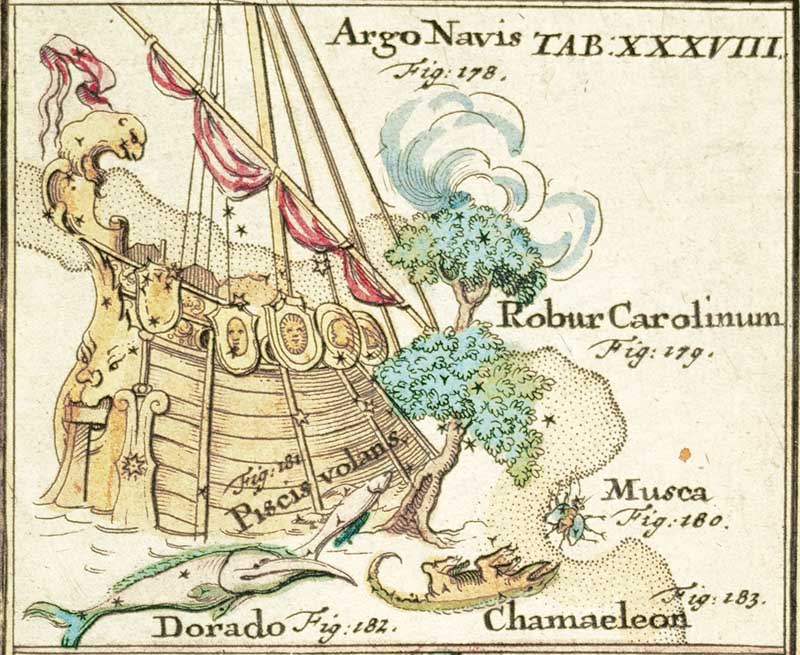 Argo Navis TAB: XXXVIII.
Fig: 178.
Robur Carolinum
Fig: 179.
Fig: 181
Piscis volans.
Musca
Fig: 180.
Dorado Fig: 182.
Chamaeleon Fig: 183.